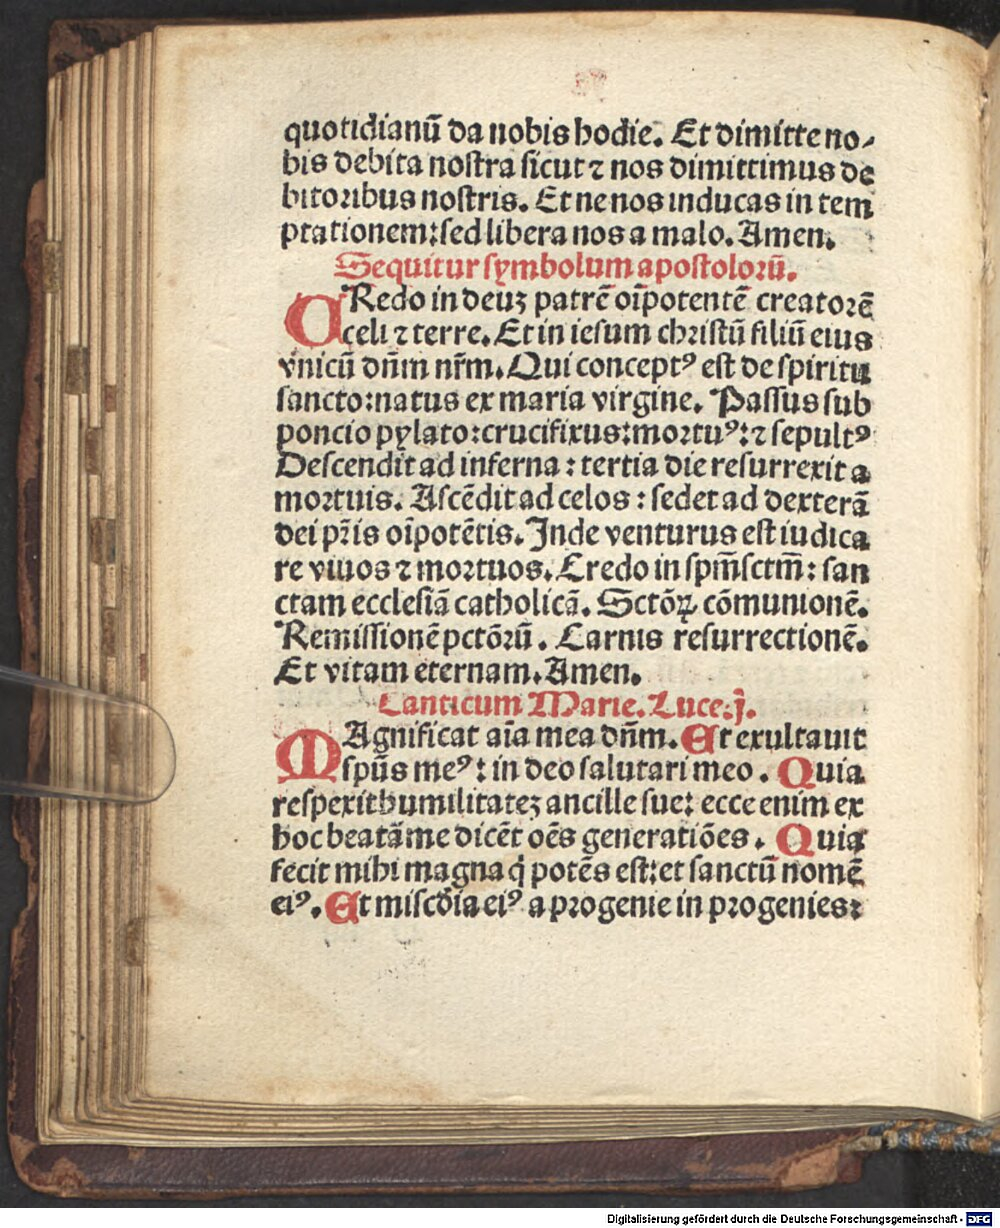 quotidianū da nobis hodie. Et dimitte no⸗
bis debita nostra sicut ⁊ nos dimittimus de
bitoribus nostris. Et ne nos inducas in tem
ptationem: sed libera nos a malo. Amen.
Sequitur symbolum apostolorū.
CRedo in deuʒ patrē oīpotentē creatorē
celi ⁊ terre. Et in iesum christū filiū eius
vnicū dn̄m nr̄m. Qui conceptꝰ est de spiritu
sancto: natus ex maria virgine. Passus sub
poncio pylato: crucifixus: mortuꝰ: ⁊ sepultꝰ
Descendit ad inferna: tertia die resurrexit a
mortuis. Ascēdit ad celos: sedet ad dexterā
dei pr̄is oīpotētis. Inde venturus est iudica
re viuos ⁊ mortuos. Credo in spm̄ sctm̄: san
ctam ecclesiā catholicā. Sctōꝝ cōmunionē.
Remissionē pctōrū. Carnis resurrectionē.
Et vitam eternam. Amen.
Canticum Marie. Luce. j.
MAgnificat aīa mea dn̄m. Et exultauit
spūs meꝰ: in deo salutari meo. Quia
respexit humilitateʒ ancille sue: ecce enim ex
hoc beatā me dicēt oēs generatiōes. Quia
fecit mihi magna q̇ potēs est: et sanctū nomē
eiꝰ. Et misc̄dia eiꝰ a progenie in progenies:
Digitalisierung gefördert durch die Deutsche Forschungsgemeinschaft - DFG